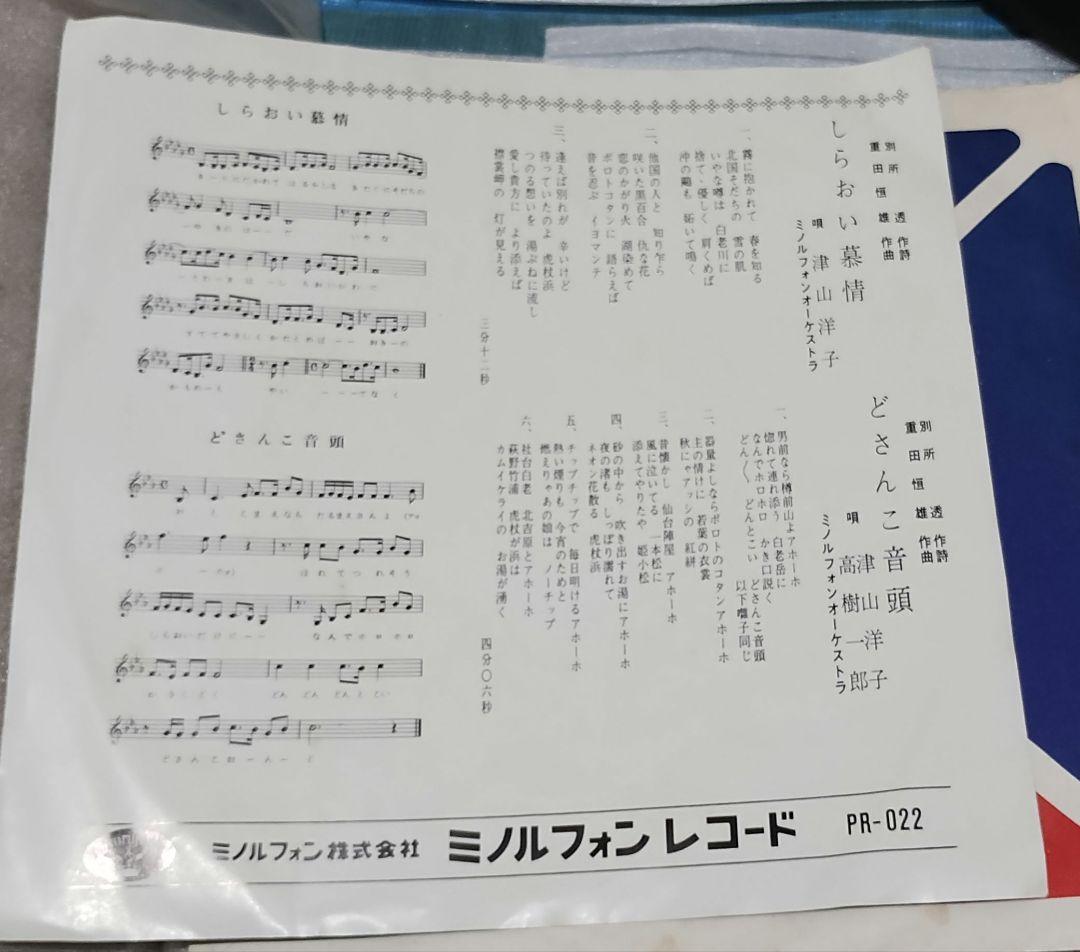 しらおい慕情
別所 透 作詩
重田恒雄 作曲
唄 津山洋子
ミノルフォンオーケストラ
一、霧に抱かれて 春を知る
北国そだちの 雪の肌
いやな噂は 白老川に
捨て・優しく 肩くめば
沖の鷗も 妬いて鳴く
二、他国の人と 知り乍ら
咲いた黒百合 仇な花
恋のかがり火 湖染めて
ポロトコタンに 語らえば
音を忍ぶ イヨマンテ
三、逢えば別れが 辛いけど
待っていたのよ 虎杖浜
つのる想いを 湯ぶねに流し
愛し貴方に より添えば
襟裳岬の 灯が見える
三分十二秒
どさんこ音頭
別所 透 作詩
重田恒雄 作曲
唄 津山洋子
高樹一郎
ミノルフォンオーケストラ
一、男前なら樽前山よアホーホ
惚れて連れ添う 白老岳に
なんでホロホロ かき口説く
どん〱 どんとこい どさんこ音頭
以下囃子同じ
二、器量よしならポロトのコタンアホーホ
主の情けに 若葉の衣裳
秋にゃアッシの 紅絣
三、昔懐かし 仙台陣屋 アホーホ
風に泣いてる 一本松に
添えてやりたや 姫小松
四、砂の中から 吹き出すお湯にアホーホ
夜の渚も しっぽり濡れて
ネオン花散る 虎杖浜
五、チップチップで 毎日明けるアホーホ
熱い煙りも 今宵のためと
燃えりゃあの娘は ノーチップ
六、社台白老 北吉原とアホーホ
萩野竹浦 虎杖が浜は
カムイケライの お湯が湧く
四分〇六秒
しらおい慕情
どさんこ音頭
ミノルフォン株式会社 ミノルフォンレコード PR-022